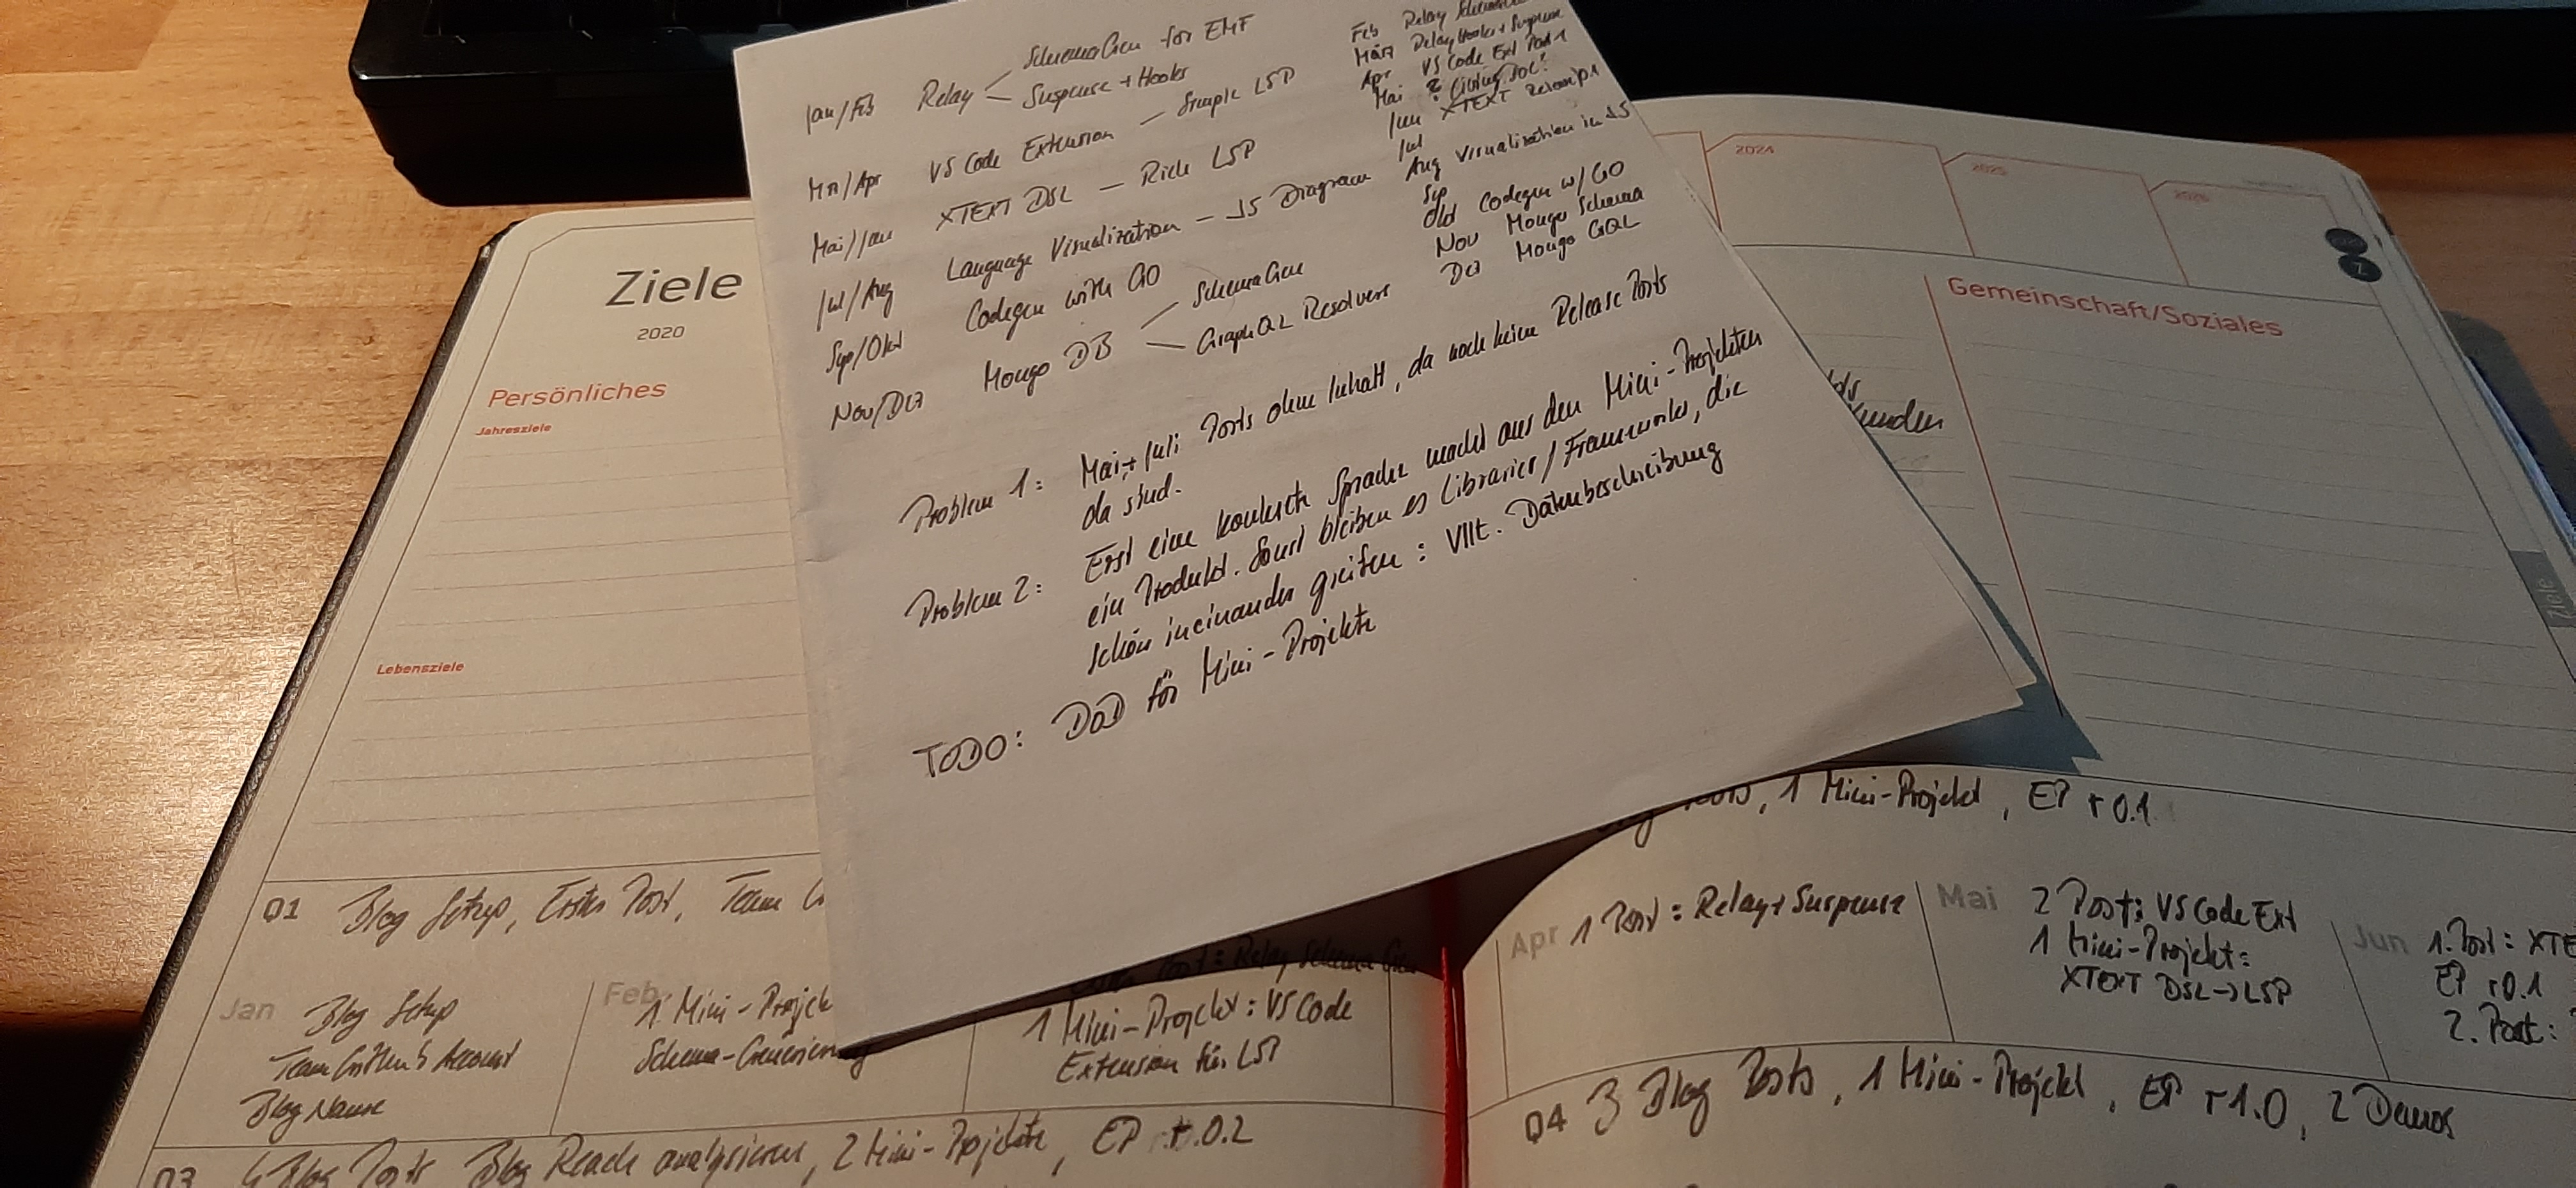 Jan/Feb Relay SchemaGen for EMF
Suspense + Hooks
Mrz/Apr VS Code Extension — Simple LSP
Mai/Jun XTEXT DSL — Rich LSP
Jul/Aug Language Visualization — JS Diagram
Sep/Okt Codegen with GO
Nov/Dez Mongo DB SchemaGen
GraphQL Resolvers
Feb Relay
März Relay Hooks + Suspense
Apr VS Code Ext Part 1
Mai ?
Jun XTEXT
Jul
Aug Visualization in JS
Sep
Okt Codegen w/ GO
Nov Mongo Schema
Dez Mongo GQL
Problem 1: Mai + Juli Posts ohne Inhalt, da noch keine Release Posts
da sind.
Problem 2: Erst eine konkrete Sprache macht aus den Mini-Projekten
ein Produkt. Sonst bleiben es Libraries/Frameworks, die
schön ineinander greifen: Vllt. Datenbeschreibung
TODO: DoD für Mini-Projekte
Ziele
2020
Persönliches
Jahresziele
Lebensziele
2024
2025
2026
Gemeinschaft/Soziales
Ziele
Q1 Blog Setup, Erster Post, Team
Jan Blog Setup
Team Account
Blog Name
Feb 1 Mini-Projek
Schema-Generierung
Post: Relay Schema Gen
1 Mini-Projekt: VS Code
Extension für LSP
, 1 Mini-Projekt, EP r0.1
Apr 1 Post: Relay + Suspense
Mai 2 Posts: VS Code Ext
1 Mini-Projekt:
XTEXT DSL → LSP
Jun 1. Post: XTE
EP r0.1
2. Post:
Q3 Blog Posts Blog Reach analysieren, 2 Mini-Projekte, EP r.0.2
Q4 3 Blog Posts, 1 Mini-Projekt, EP r1.0, 2 Demos